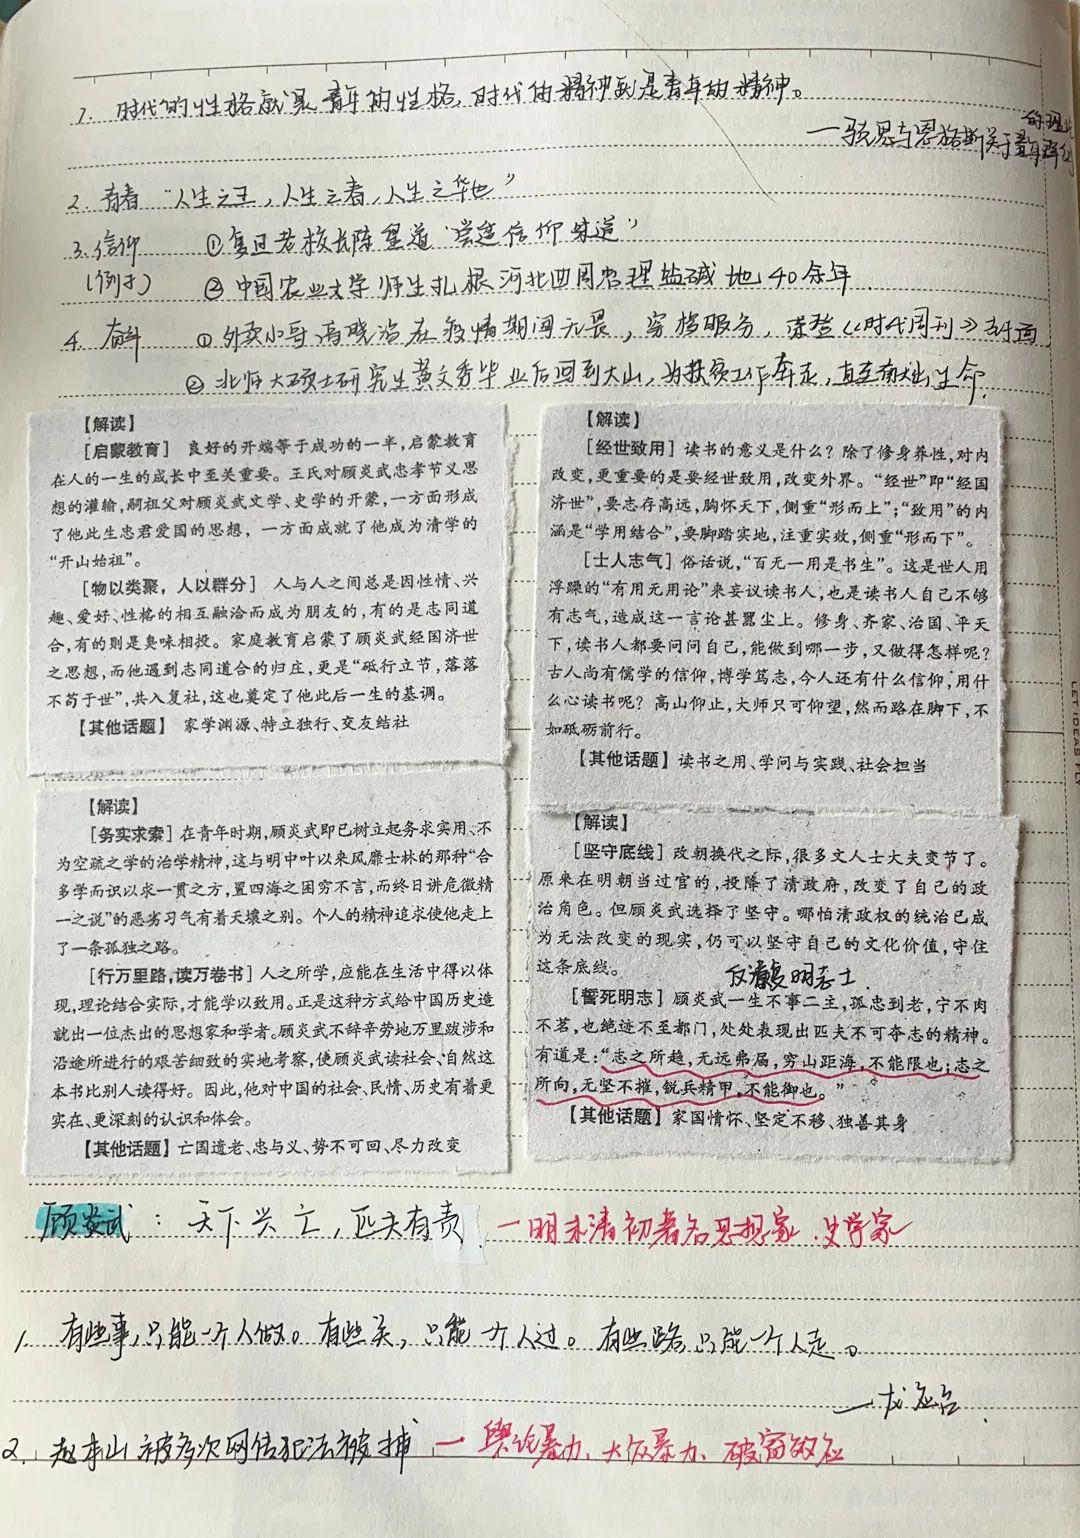 1. 时代的性格就是青年的性格,时代的精神到是青年的精神。
的理论
一马克思与恩格斯关于青年
2. 青春 “人生之王,人生之春,人生之华也”
3. 信仰 ①复旦老校长陈望道“尝进信仰味道”
(例子) ② 中国农业大学师生扎根河北曲周治理盐碱地40余年.
4. 奋斗 ① 外卖小哥高晓治在疫情期间无畏,穿梭服务,荣登《时代周刊》封面
② 北师大硕士研究生黄文秀毕业后回到大山,为扶贫工作奔走,直至献出生命.
【解读】
[启蒙教育] 良好的开端等于成功的一半,启蒙教育
在人的一生的成长中至关重要。王氏对顾炎武忠孝节义思
想的灌输,嗣祖父对顾炎武文学、史学的开蒙,一方面形成
了他此生忠君爱国的思想,一方面成就了他成为清学的
“开山始祖”。
[物以类聚,人以群分] 人与人之间总是因性情、兴
趣、爱好、性格的相互融洽而成为朋友的,有的是志同道
合,有的则是臭味相投。家庭教育启蒙了顾炎武经国济世
之思想,而他遇到志同道合的归庄,更是“砥行立节,落落
不苟于世”,共入复社,这也奠定了他此后一生的基调。
【其他话题】 家学渊源、特立独行、交友结社
【解读】
[经世致用] 读书的意义是什么?除了修身养性,对内
改变,更重要的是要经世致用,改变外界。“经世”即“经国
济世”,要志存高远,胸怀天下,侧重“形而上”;“致用”的内
涵是“学用结合”,要脚踏实地,注重实效,侧重“形而下”。
[士人志气] 俗话说,“百无一用是书生”。这是世人用
浮躁的“有用无用论”来妄议读书人,也是读书人自己不够
有志气,造成这一言论甚嚣尘上。修身、齐家、治国、平天
下,读书人都要问问自己,能做到哪一步,又做得怎样呢?
古人尚有儒学的信仰,博学笃志,今人还有什么信仰,用什
么心读书呢?高山仰止,大师只可仰望,然而路在脚下,不
如砥砺前行。
【其他话题】读书之用、学问与实践、社会担当
LET IDEAS FLY
【解读】
[务实求索] 在青年时期,顾炎武即已树立起务求实用、不
为空疏之学的治学精神,这与明中叶以来风靡士林的那种“合
多学而识以求一贯之方,置四海之困穷不言,而终日讲危微精
一之说”的恶劣习气有着天壤之别。个人的精神追求使他走上
了一条孤独之路。
[行万里路,读万卷书] 人之所学,应能在生活中得以体
现,理论结合实际,才能学以致用。正是这种方式给中国历史造
就出一位杰出的思想家和学者。顾炎武不辞辛劳地万里跋涉和
沿途所进行的艰苦细致的实地考察,使顾炎武读社会、自然这
本书比别人读得好。因此,他对中国的社会、民情、历史有着更
实在、更深刻的认识和体会。
【其他话题】亡国遗老、忠与义、势不可回、尽力改变
【解读】
[坚守底线] 改朝换代之际,很多文人士大夫变节了。
原来在明朝当过官的,投降了清政府,改变了自己的政
治角色。但顾炎武选择了坚守。哪怕清政权的统治已成
为无法改变的现实,仍可以坚守自己的文化价值,守住
这条底线。
反清复明志士
[誓死明志] 顾炎武一生不事二主,孤忠到老,宁不肉
不茗,也绝迹不至都门,处处表现出匹夫不可夺志的精神。
有道是:“志之所趋,无远弗届,穷山距海,不能限也;志之
所向,无坚不摧,锐兵精甲,不能御也。”
【其他话题】家国情怀、坚定不移、独善其身
顾炎武: 天下兴亡,匹夫有责. 一明末清初著名思想家、史学家
1. 有些事,只能一个人做。有些关,只能一个人过。有些路只能一个人走。
—龙应台.
2. 赵本山被多次网传犯法被捕 — 舆论暴力、大众暴力、破窗效应